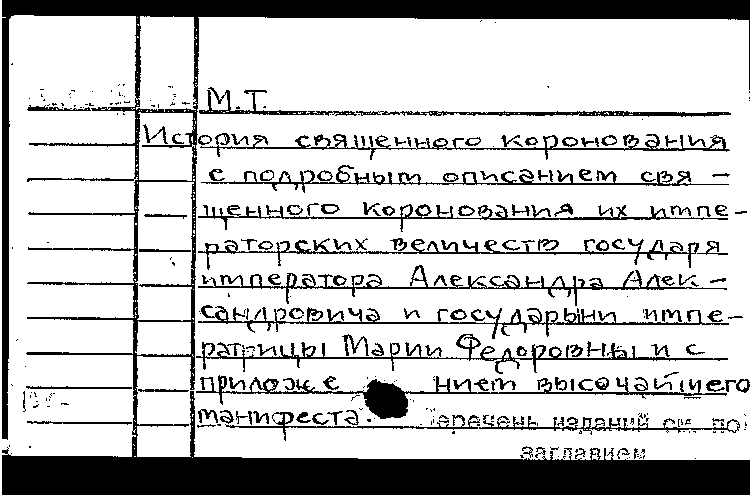 М.Т.
История священного коронования
с подробным описанием свя -
щенного коронования их импе-
раторских величеств государя
императора Александра Алек -
сандровича и государыни импе-
ратрицы Марии Федоровны и с
приложе нием высочайшего
манифеста.
Перечень изданий см. под
заглавием